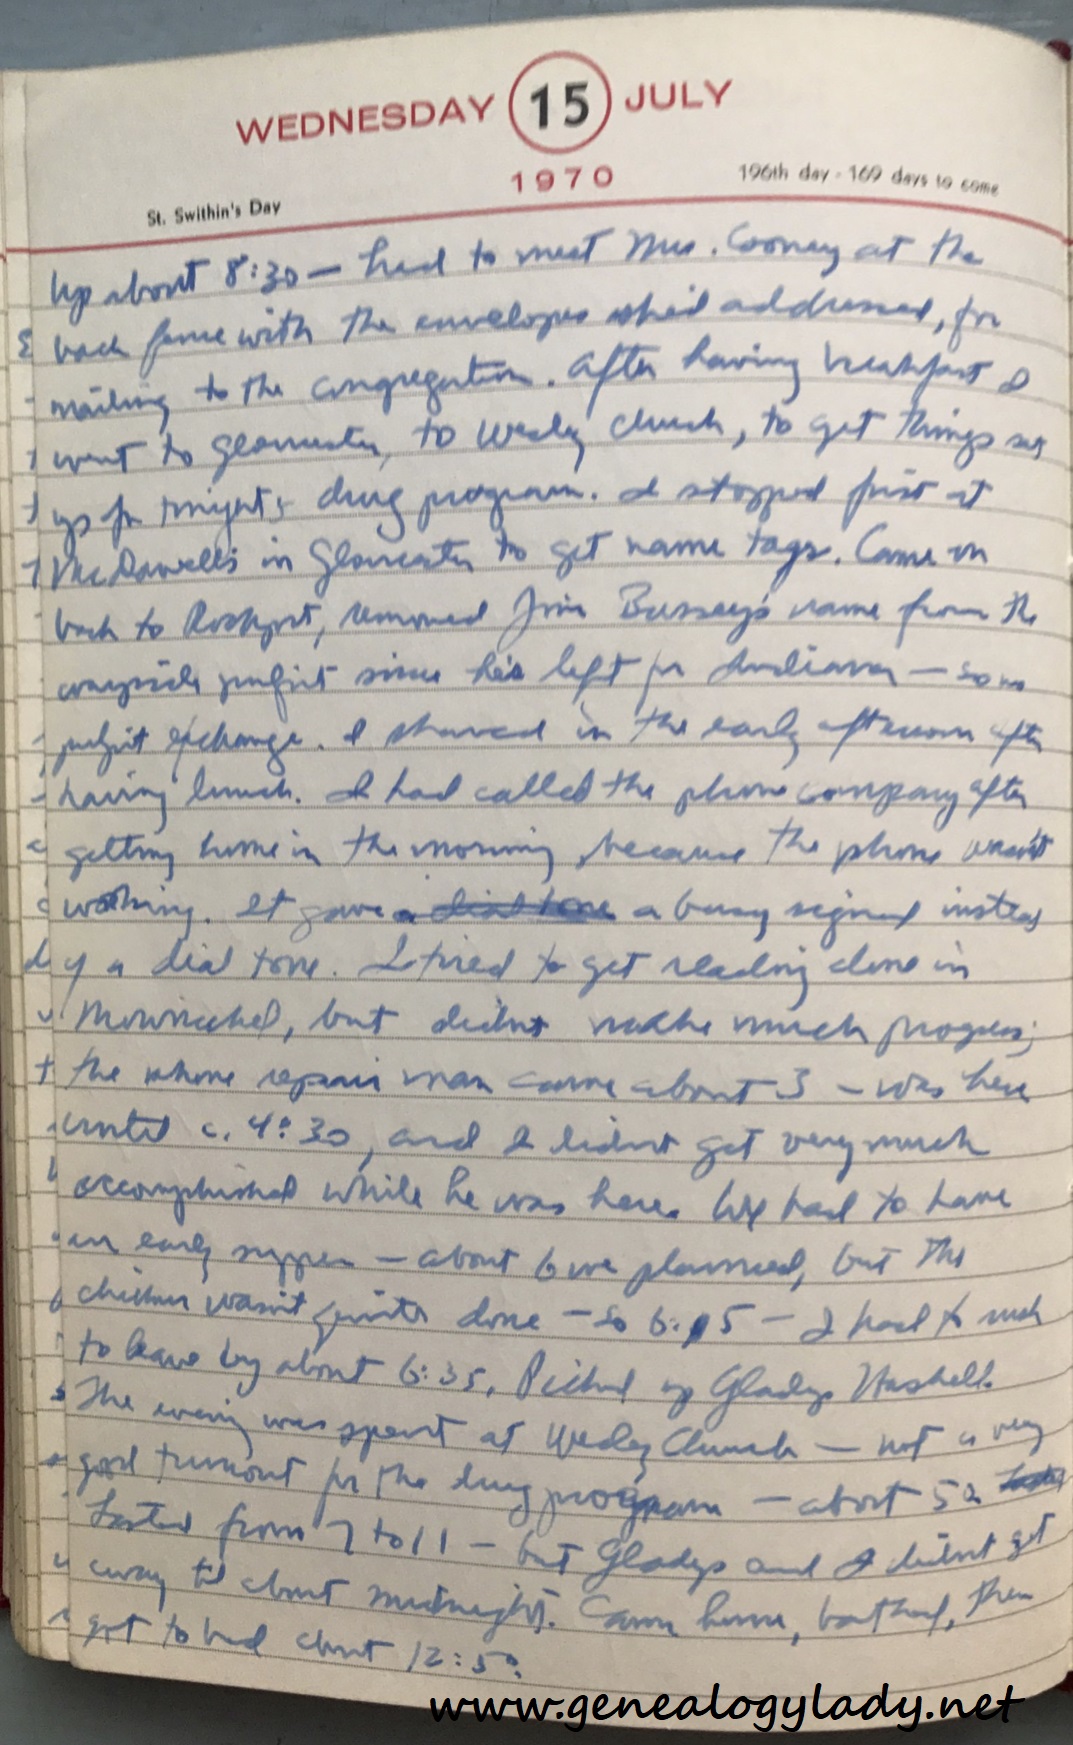 WEDNESDAY 15 JULY
1970
196th day - 169 days to come
St. Swithin's Day
Up about 8:30 — had to meet Mrs. Cooney at the
back fence with the envelopes she'd addressed, for
mailing to the congregation. After having breakfast I
went to Gloucester, to Wesley Church, to get things set
up for tonight's drug program. I stopped first at
McDowell's in Gloucester to get name tags. Came on
back to Rockport, removed Jim Bussey's name from the
wayside pulpit since he's left for Indiana — so no
pulpit exchange. I shaved in the early afternoon after
having lunch. I had called the phone company after
getting home in the morning, because the phone wasn't
working. It gave a dial tone a busy signal instead
of a dial tone. I tried to get reading done in
but didn't make much progress;
the phone repair man came about 3 — was here
until c. 4:30, and I didn't get very much
accomplished while he was here. We had to have
an early supper — about 6 we planned, but the
chicken wasn't quite done — so 6:15 — I had to rush
to leave by about 6:35. Picked up Gladys Haskell.
The evening was spent at Wesley Church — not a very
good turnout for the drug program — about 50
Lasted from 7 to 11 — but Gladys and I didn't get
away til about midnight. Came home, bathed, then
got to bed about 12:50.
www.genealogylady.net